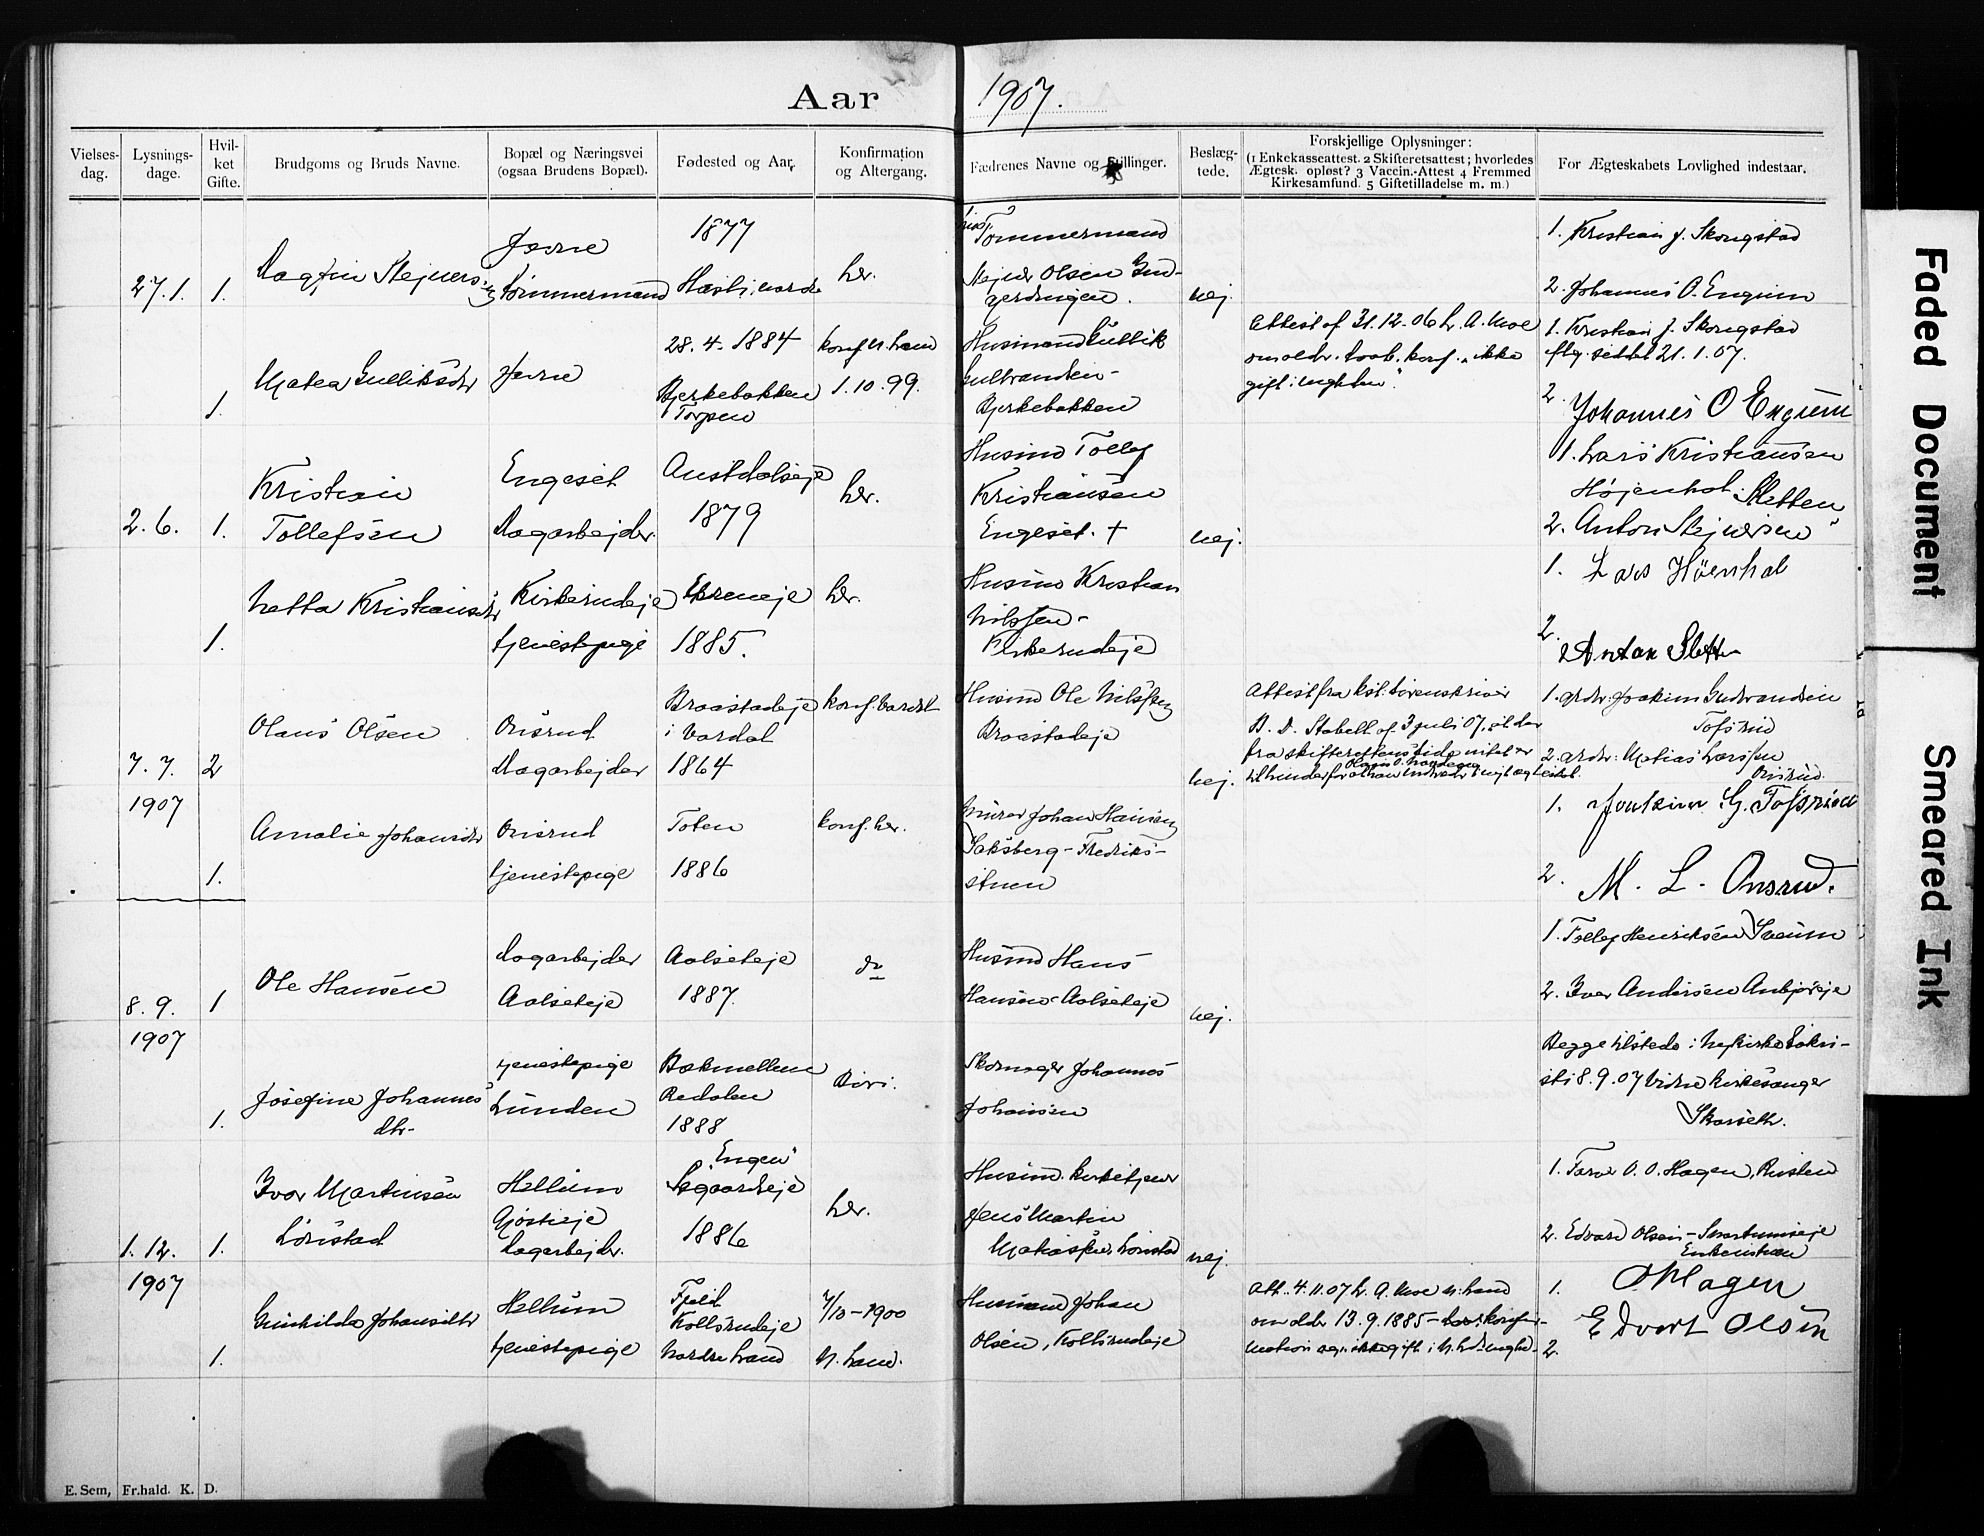 Aar 1907.
Vielses-dag. Lysnings-dage. Hvil-ket Gifte. Brudgoms og Bruds Navne. Bopæl og Næringsvei (ogsaa Brudens Bopæl). Fødested og Aar. Konfirmation og Altergang. Fædrenes Navne og Stillinger. Beslæg-tede. Forskjellige Oplysninger: (1 Enkekasseattest. 2 Skifteretsattest; hvorledes Ægtesk. opløst? 3 Vaccin.-Attest 4 Fremmed Kirkesamfund. 5 Giftetilladelse m. m.) For Ægteskabets Lovlighed indestaar.
27.1. 1.
Jevne
Tømmermand
1877
her.
Tømmermand
Olsen
nej.
1. Kristian J. Skongstad
2. Johannes O. Engum
1.
Matea Gulliksdtr
Jevne
28. 4. 1884
Bjerkebakken
Torpen
konf. N. Land
1. 10. 99.
Husmand Gullik
Gulbrandsen -
Bjerkebakken
Attest af 31. 12. 06 L. A. Moe
om alder, daab, konf., "ikke
gift i
1. Kristian J. Skongstad
21. 1. 07.
2.
Johannes O Engum
2. 6. 1.
Kristian
Tollefsen
Engeset
Dagarbejder.
Austdalseje
1879
her.
Husmd Tollef
Kristiansen
Engeset. +
nej.
1. Lars Kristiansen
Højenhol. Sletten
2. Anton Stejnersen "
1.
Netta Kristiansdtr
Kirkerudeje
tjenestepige
Ekreneje
1885.
her.
Husmd Kristian
Nilssen -
Kirkerudeje
1. Lars Höenhol
2.
Anton Sletten
7. 7. 2
1907
Olaus Olsen
Onsrud
Dagarbejder
Braastadeje
i Vardal
1864
konf. Vardal
Husmd Ole Nilssen
Braastadeje
nej.
Attest fra kst. Sorenskriver
B. D. Stabell af 3 juli 07, at der
fra skifterettens side intet er
1. grdr. Joakim Gudbrandsen
Tofsrud
2. grdr: Matias Larssen
Onsrud
1.
Amalie Johansdtr
Onsrud
tjenestepige
Toten
1886
konf. her.
Murer Johan Hansen
Saksberg - Fredriks-
stuen
1. Joakim G. Tofsrud
2. M. L. Onsrud.
8. 9. 1
1907
Ole Hansen
Dagarbejder
Aalseteje
Aalseteje
1887.
do
Husmd Hans
Hansen - Aalseteje
nej.
1. Tollef Henriksen Sveum
2. Iver Andersen
Begge tilstede i Nykirke Sakri-
sti 8. 9. 07 Vidne kirkesanger
Skarseth.
1.
Josefine Johannes
dtr.
tjenestepige
Lunden
Bækmellem
Redalen
1888
Biri.
Skomager Johannes
Johansen
1. 12. 1.
1907
Ivar Martinsen
Lønstad
Hellum
Gjøstieje
Dagarbejdr.
"Engen"
1886
her.
Husmd. kirketjener
Jens Martin
Matiassen, Lønstad
nej.
1. O. O. Hagen,
2. Edvard Olsen - Svartumseje
1.
Gunhilda Johansdtr
Hellum
tjenestepige
Kollsrudeje
Nordre Land
7/10 - 1900
N. Land.
Husmand Johan
Olsen, Kollsrudeje
Att. 4. 11. 07 L. A. Moe N. Land
om alder 13. 9. 1885 -
1. O Hagen
Edvart Olsen
2.
E. Sem, Fr.hald. K. D.
Faded Document
Smeared Ink